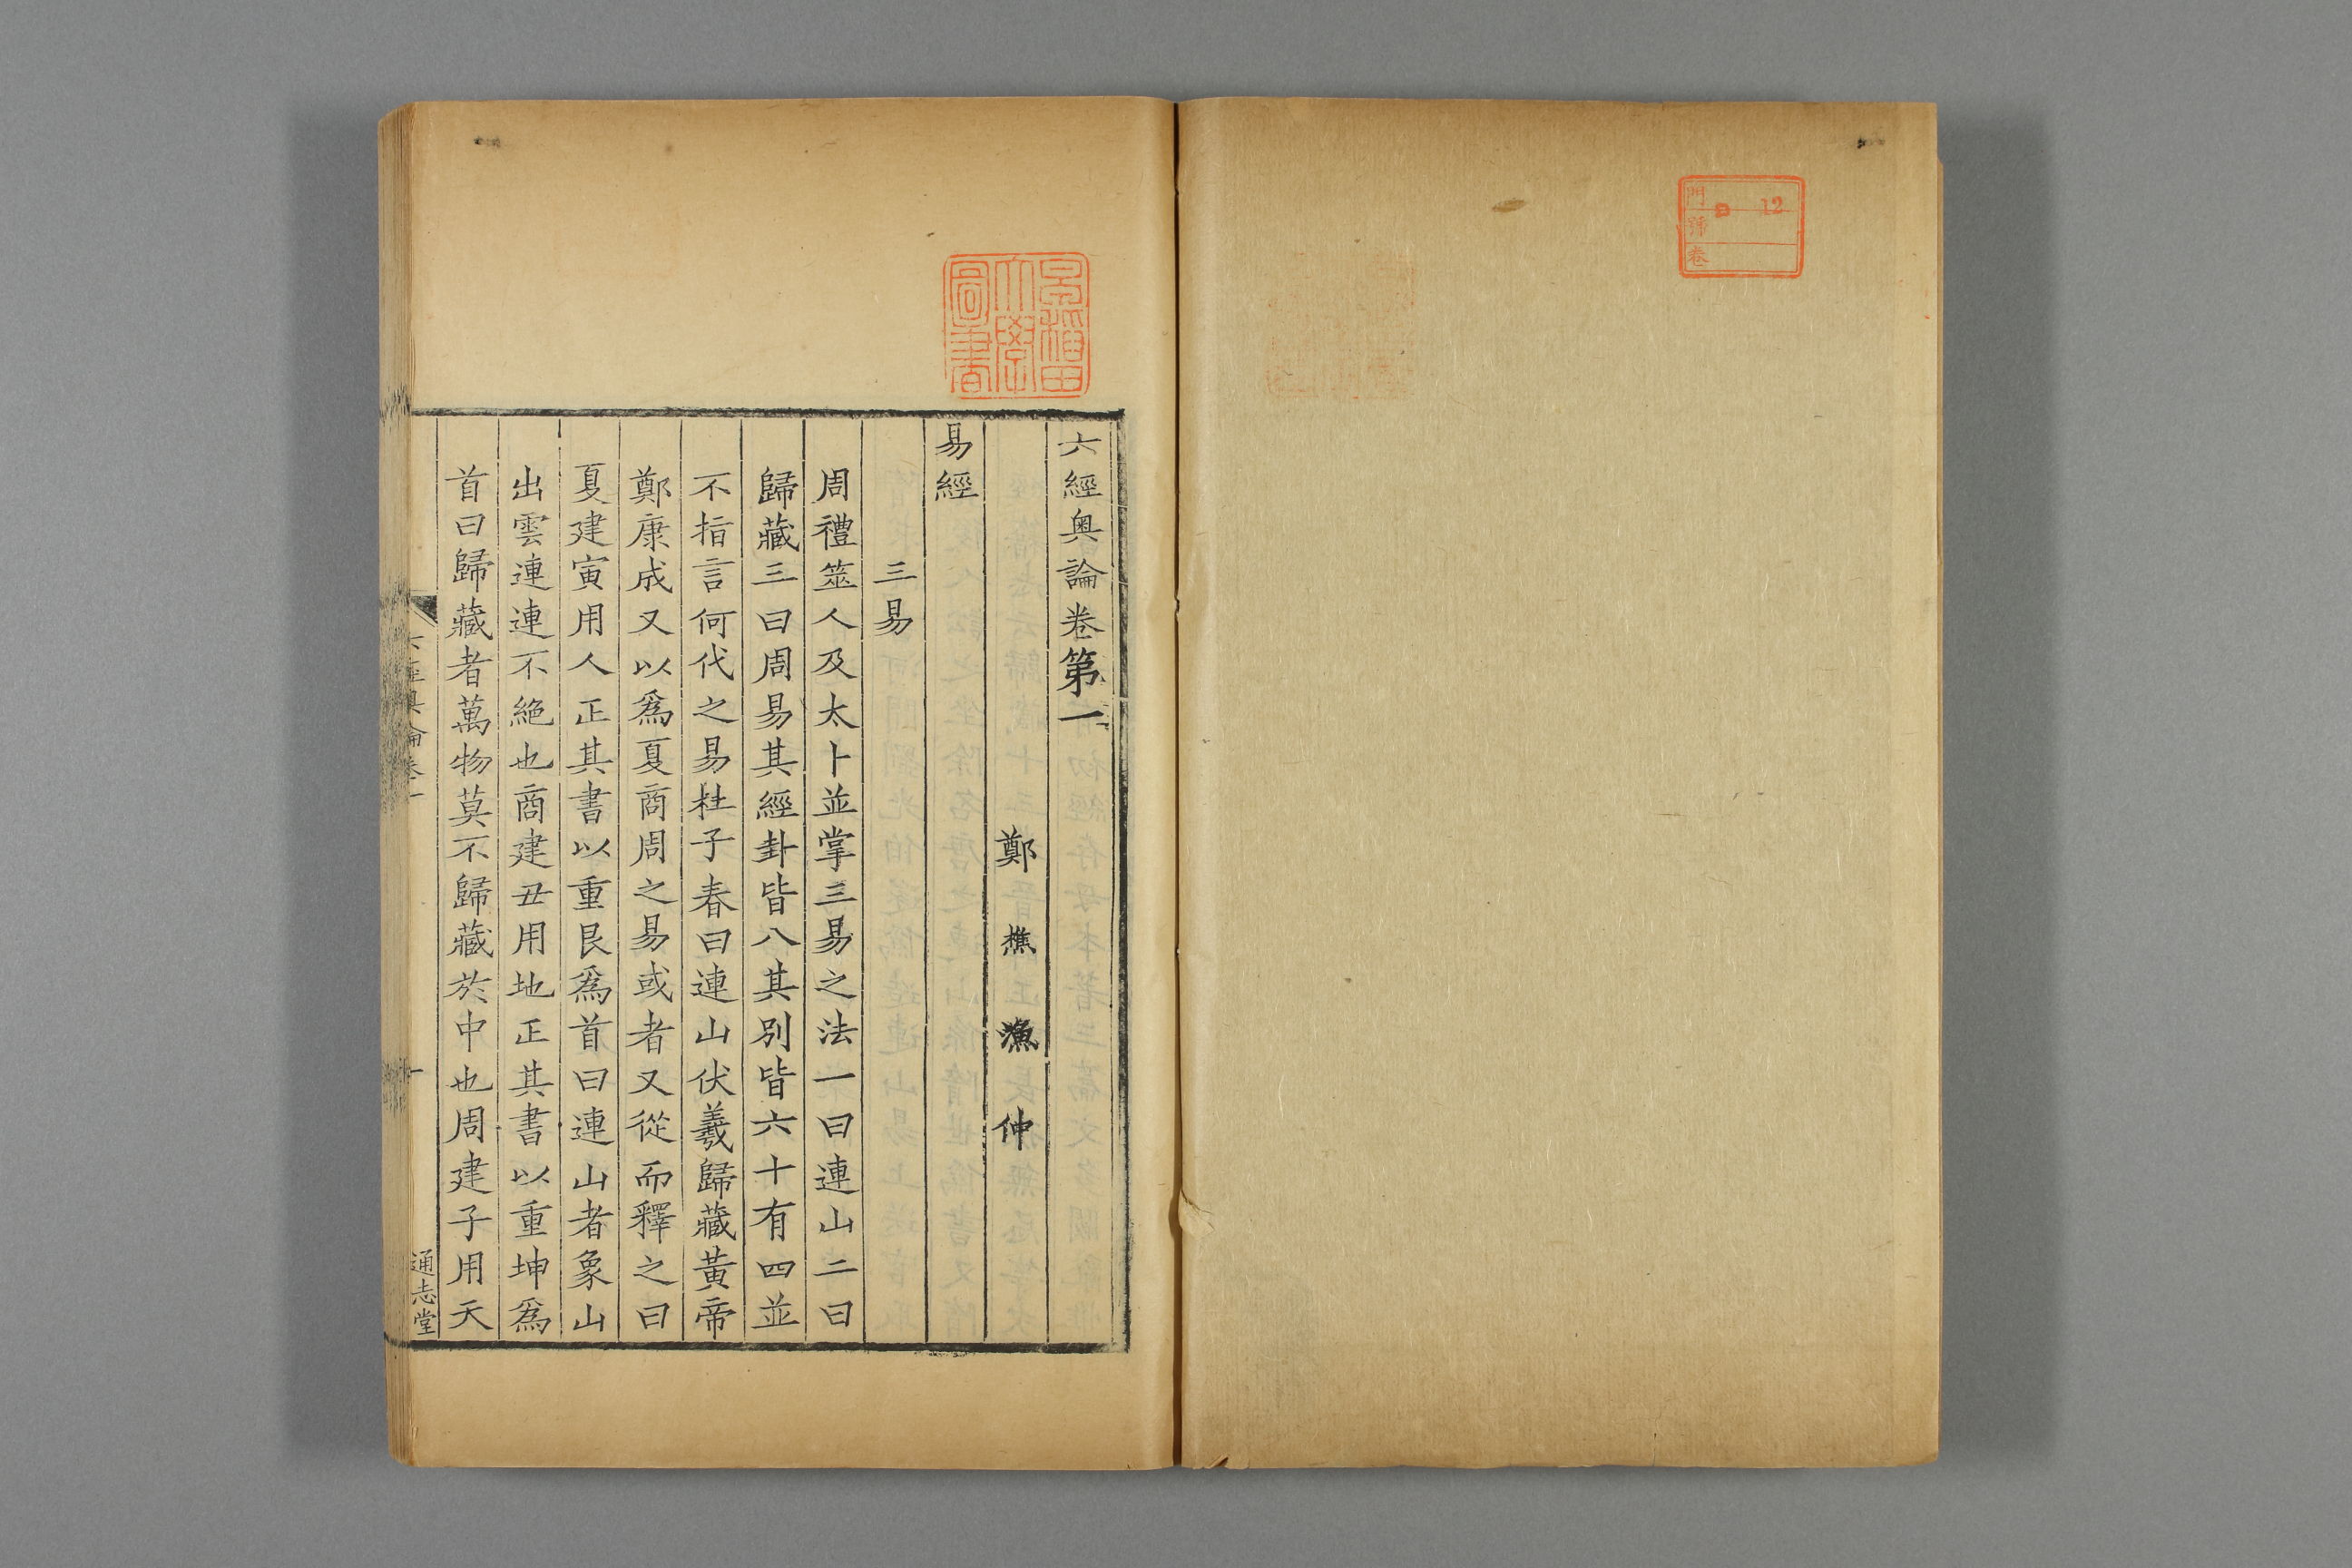 門
號
卷
12
早稲田
大學
圖書
六經奧論卷第一
鄭樵漁仲
易經
三易
周禮筮人及太卜並掌三易之法一曰連山二曰
歸藏三曰周易其經卦皆八其別皆六十有四並
不指言何代之易杜子春曰連山伏羲歸藏黃帝
鄭康成又以爲夏商周之易或者又從而釋之曰
夏建寅用人正其書以重艮爲首曰連山者象山
出雲連連不絕也商建丑用地正其書以重坤爲
首曰歸藏者萬物莫不歸藏於中也周建子用天
六經奧論卷一
一
通志堂